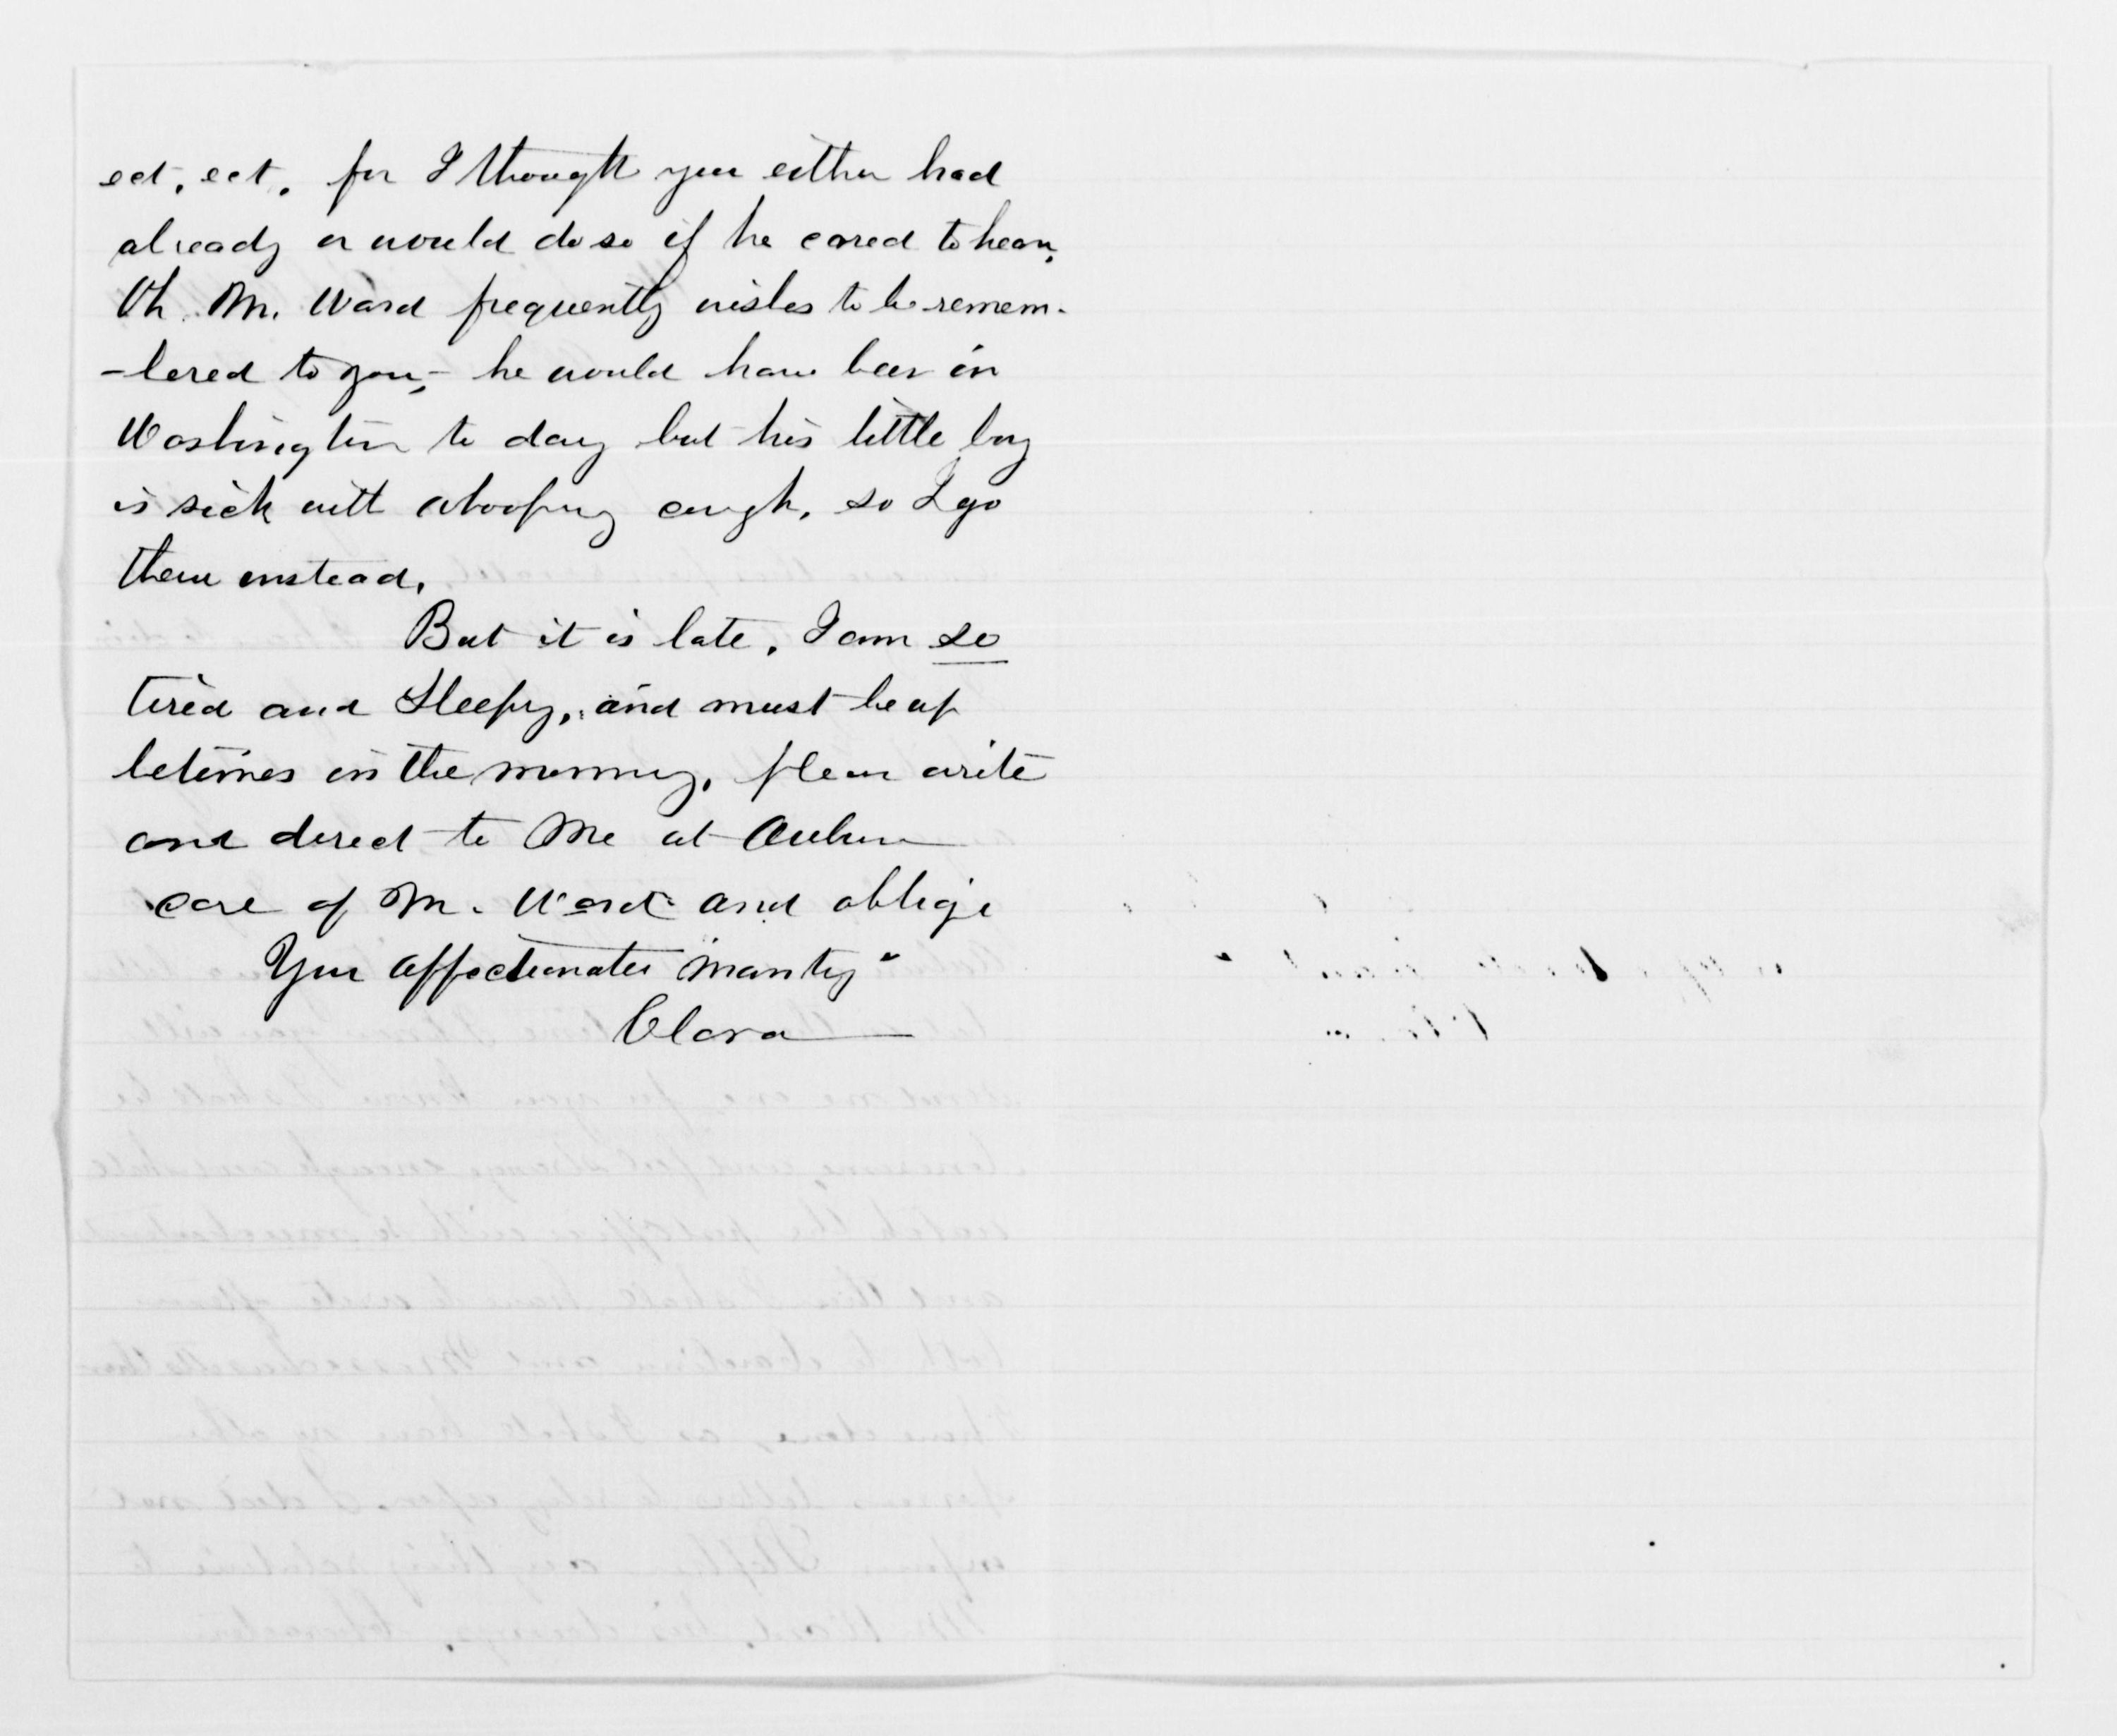 ect, ect, for I thought you either had
already or would do so if he cared to hear,
Oh Mr. Ward frequently wishes to be remem-
-bered to you,- he would have been in
Washington to day but his little boy
is sick with whooping cough, so I go
there instead.
But it is late, I am so
tired and sleepy, and must be up
betimes in the morning, please write
and direct to me at Auburn
care of Mr. Ward and oblige
Your affectionate "manty"
Clara